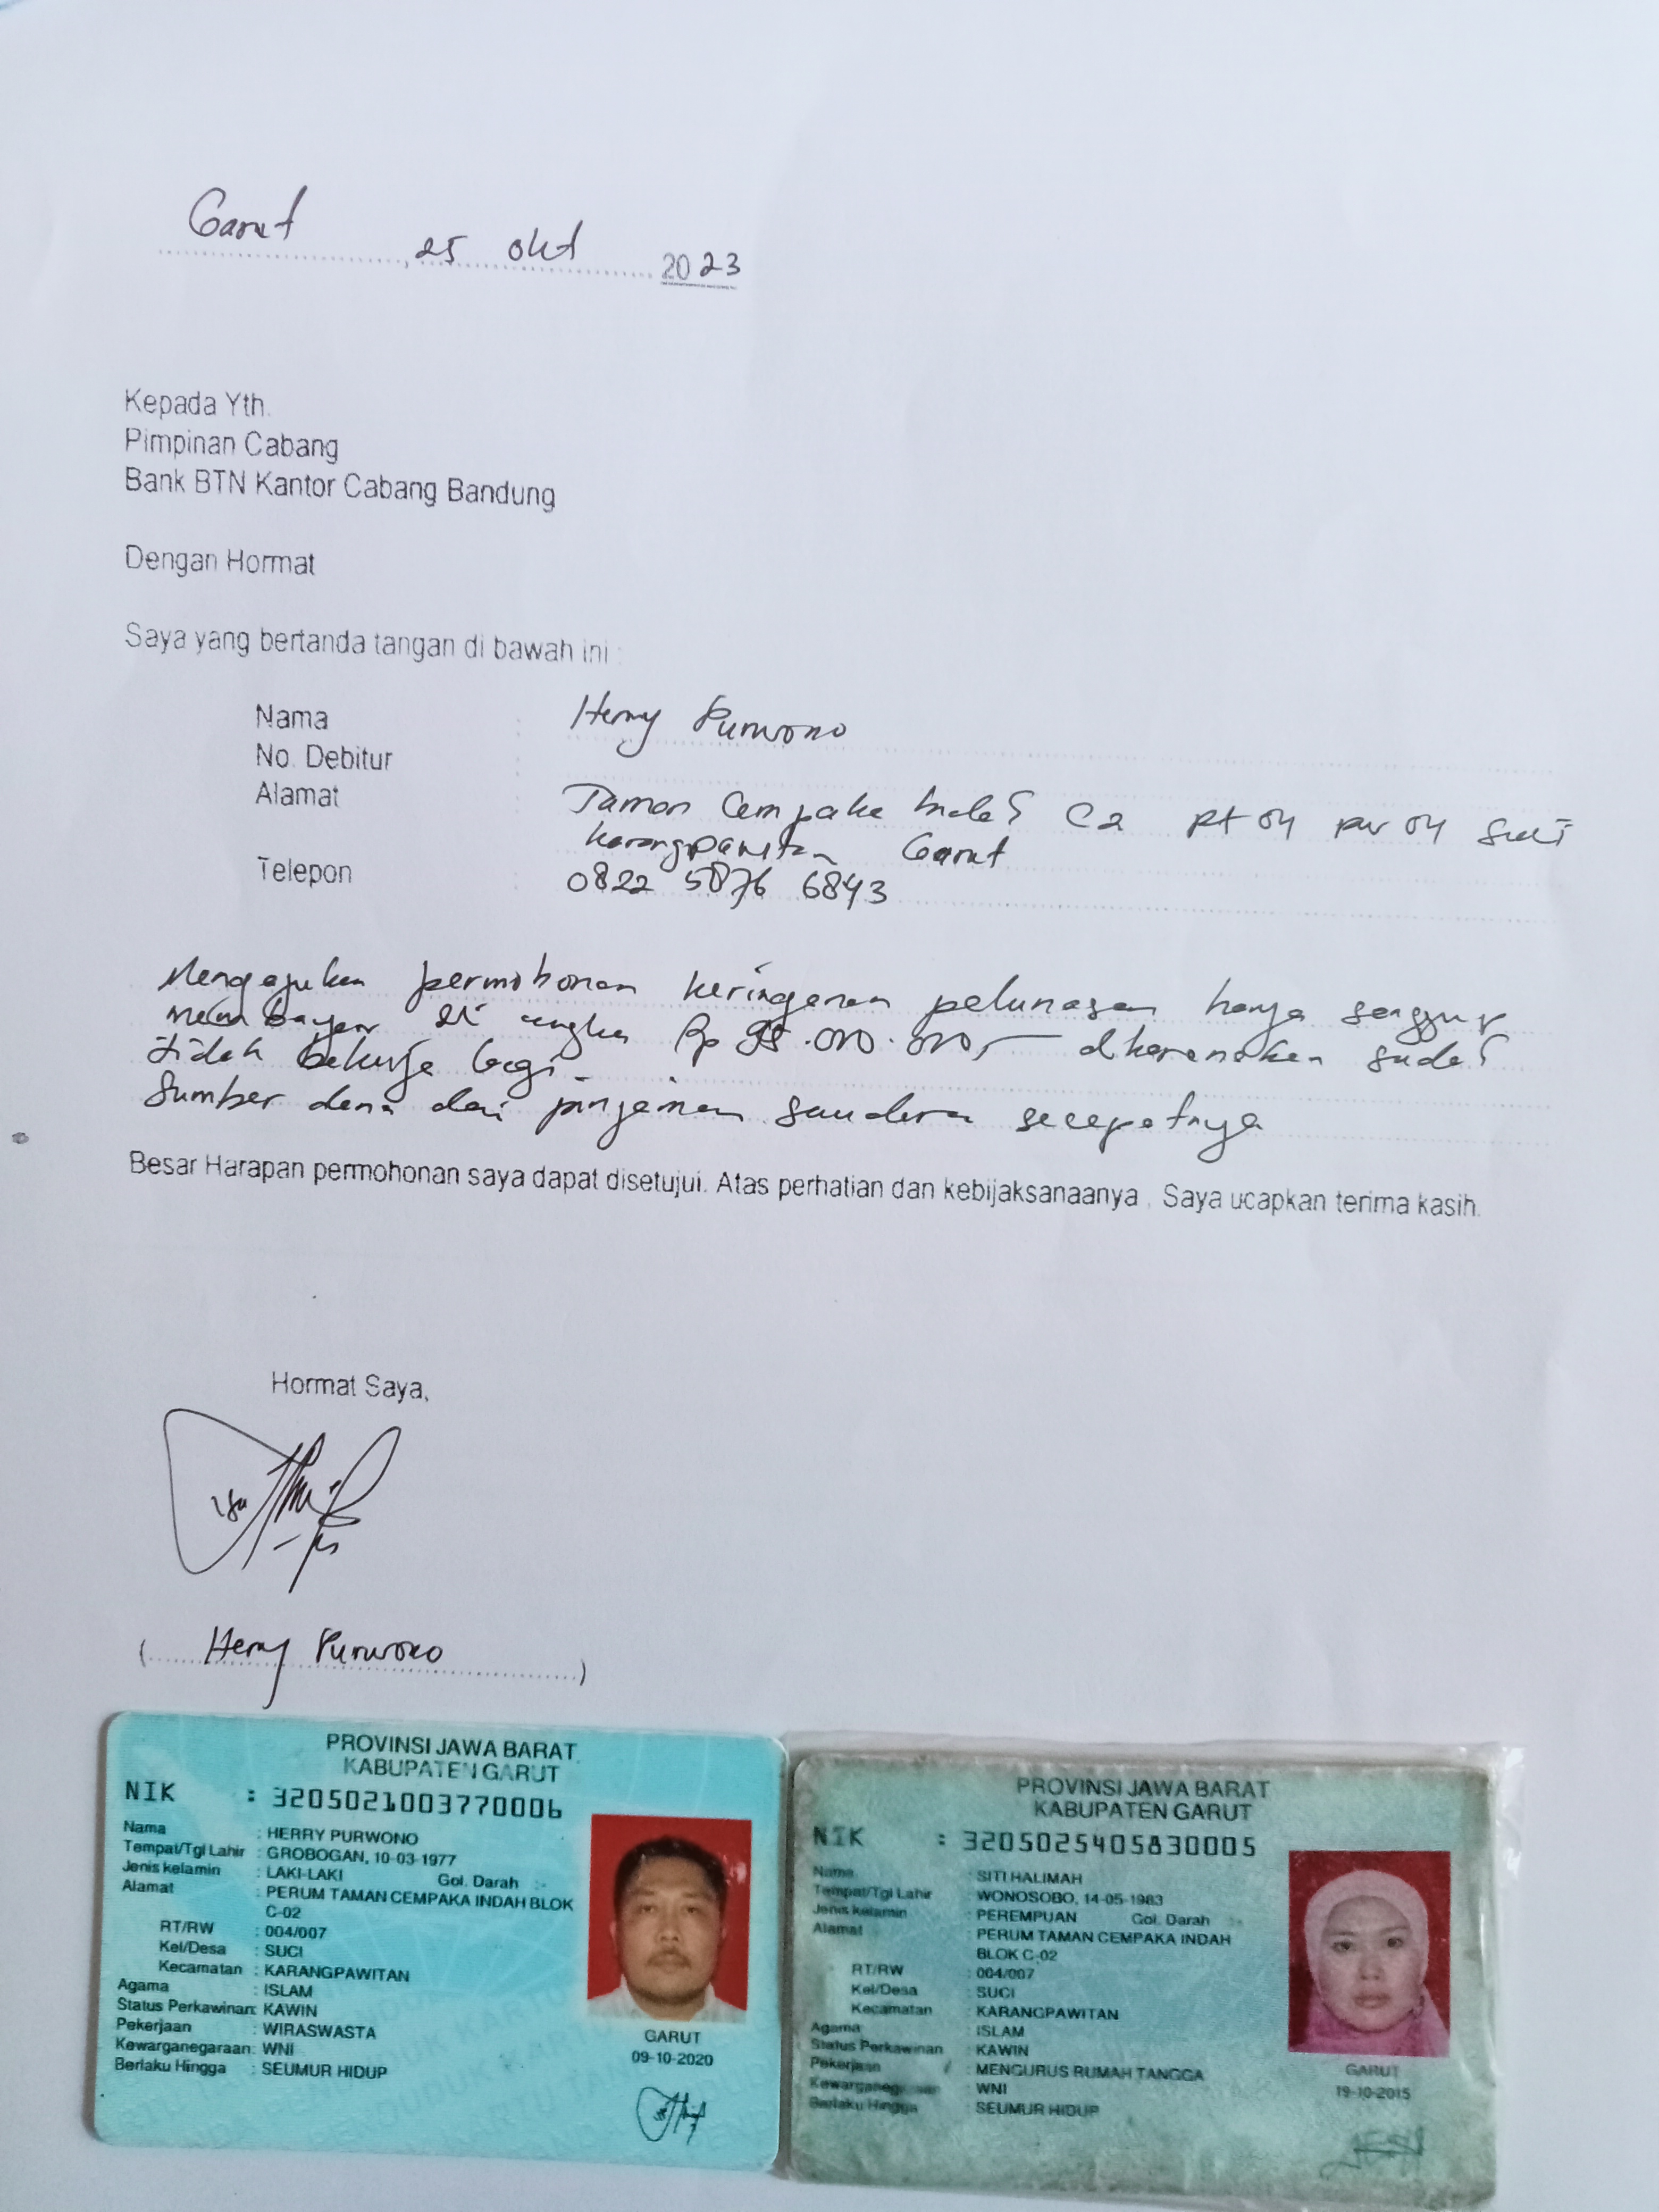 Garut, 25 okt 2023
Kepada Yth.
Pimpinan Cabang
Bank BTN Kantor Cabang Bandung
Dengan Hormat
Saya yang bertanda tangan di bawah ini :
Nama : Herry Purwono
No. Debitur :
Alamat : Taman Cempaka Indah C2 Rt 04 Rw 04 Suci
Karangpawitan Garut
Telepon : 0822 5876 6843
Mengajukan permohonan keringanan pelunasan hanya sanggup
membayar di angka Rp .000.000,- dikarenakan sudah
tidak bekerja lagi.
Sumber dana dari pinjaman saudara secepatnya
Besar Harapan permohonan saya dapat disetujui. Atas perhatian dan kebijaksanaanya , Saya ucapkan terima kasih.
Hormat Saya,
( Herry Purwono )
PROVINSI JAWA BARAT
KABUPATEN GARUT
NIK : 3205021003770006
Nama : HERRY PURWONO
Tempat/Tgl Lahir : GROBOGAN, 10-03-1977
Jenis kelamin : LAKI-LAKI Gol. Darah : -
Alamat : PERUM TAMAN CEMPAKA INDAH BLOK
C-02
RT/RW : 004/007
Kel/Desa : SUCI
Kecamatan : KARANGPAWITAN
Agama : ISLAM
Status Perkawinan: KAWIN
Pekerjaan : WIRASWASTA
Kewarganegaraan: WNI
Berlaku Hingga : SEUMUR HIDUP
GARUT
09-10-2020
PROVINSI JAWA BARAT
KABUPATEN GARUT
NIK : 3205025405830005
Nama : SITI HALIMAH
Tempat/Tgl Lahir : WONOSOBO, 14-05-1983
Jenis kelamin : PEREMPUAN Gol. Darah : -
Alamat : PERUM TAMAN CEMPAKA INDAH
BLOK C-02
RT/RW : 004/007
Kel/Desa : SUCI
Kecamatan : KARANGPAWITAN
Agama : ISLAM
Status Perkawinan : KAWIN
Pekerjaan : MENGURUS RUMAH TANGGA
Kewarganegaraan : WNI
Berlaku Hingga : SEUMUR HIDUP
GARUT
19-10-2015